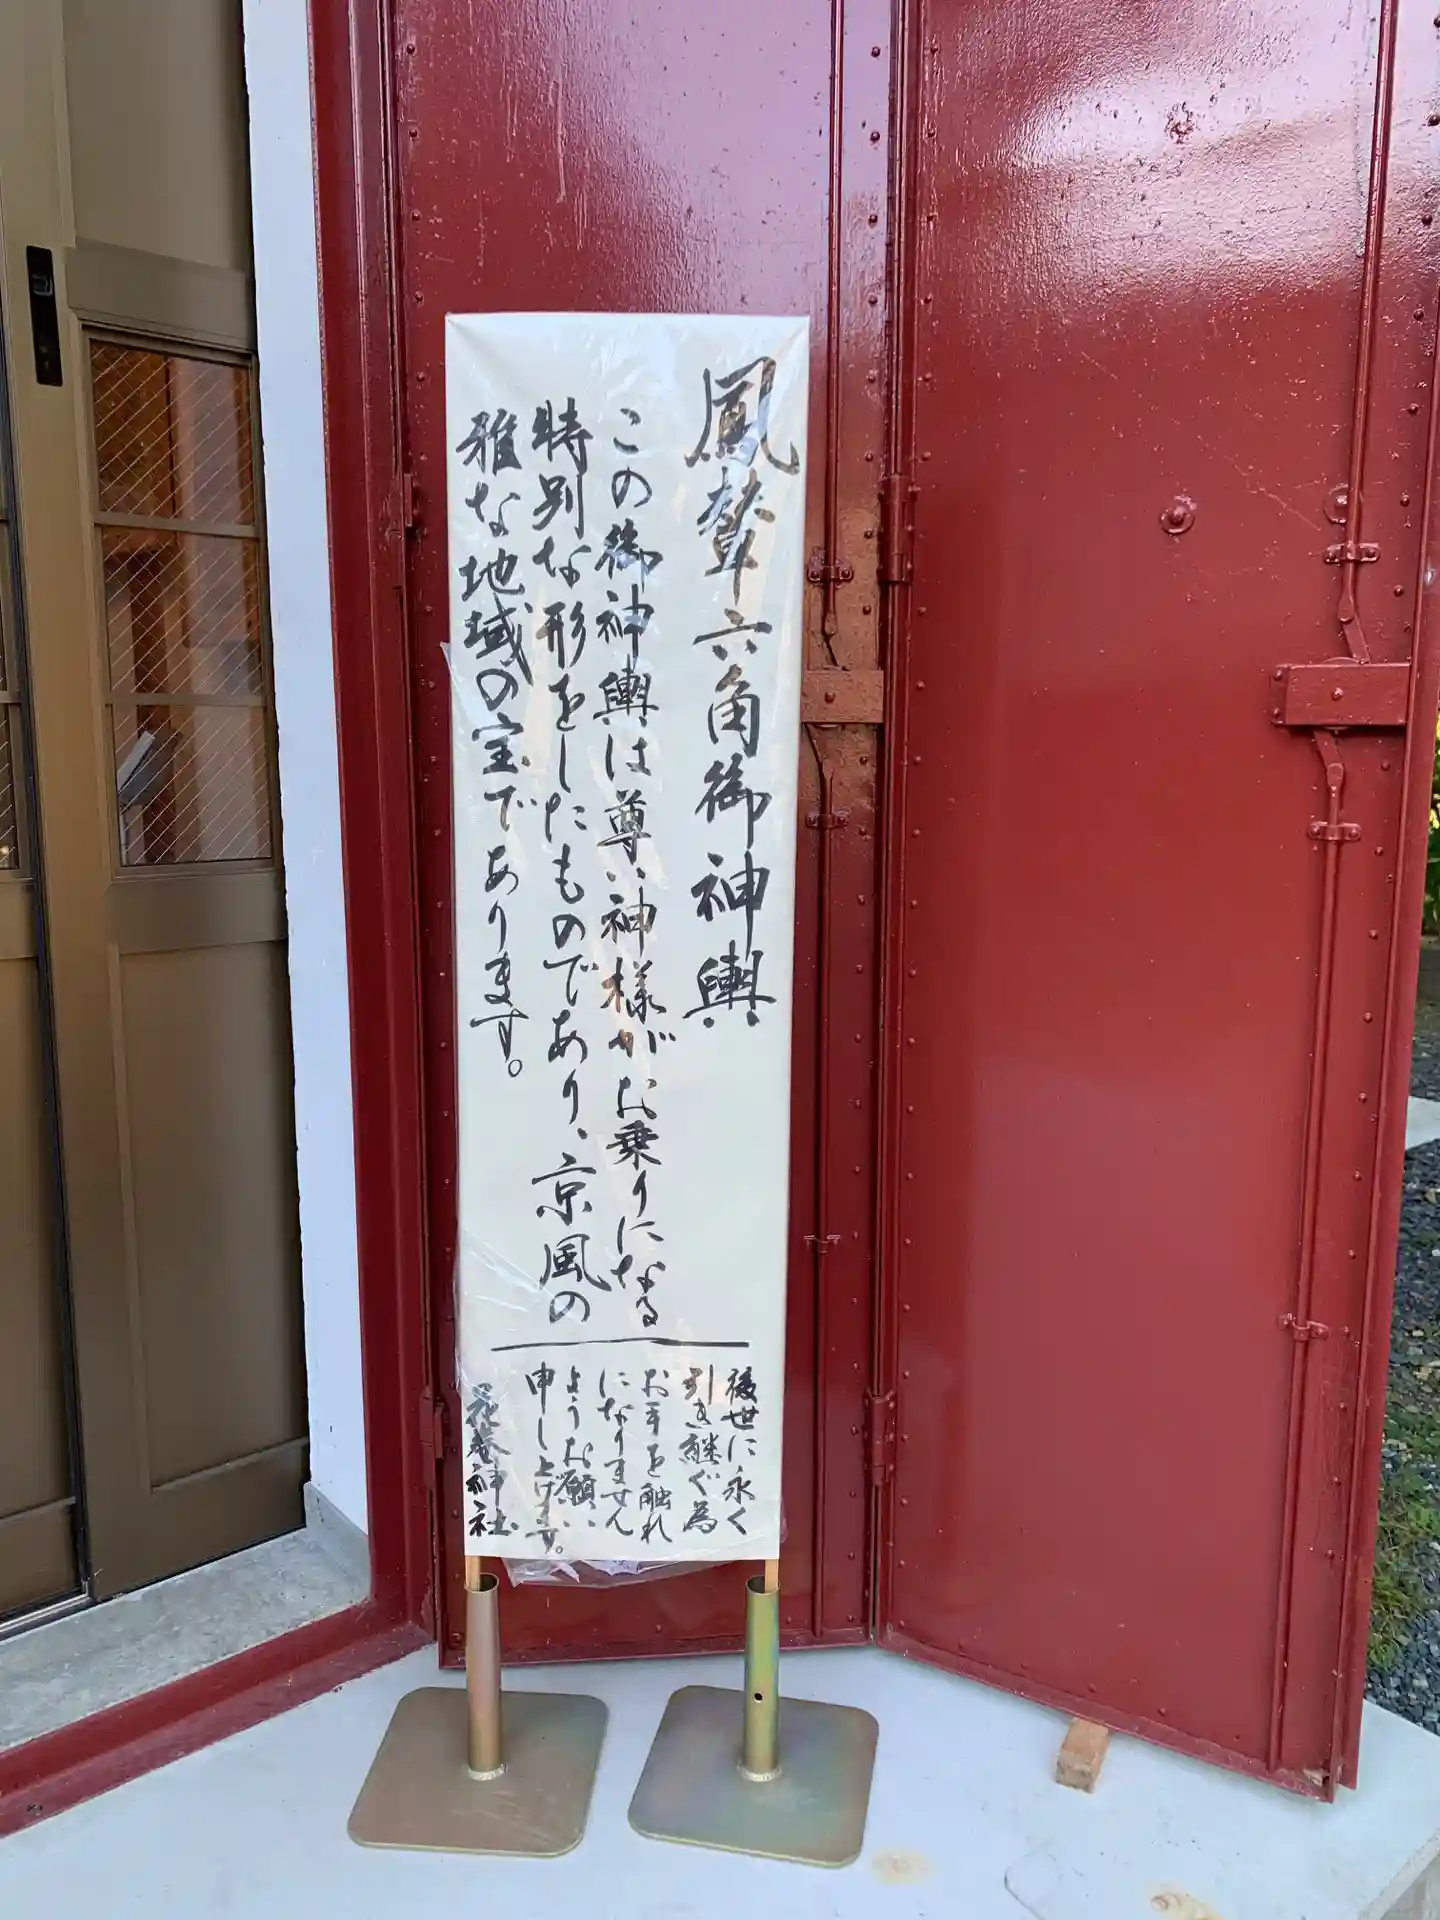 鳳輦六角御神輿
この御神輿は尊い神様がお乗りになる
特別な形をしたものであり、京風の
雅な地域の宝であります。
後世に永く
引き継ぐ為
お手を触れ
になりません
ようお願い
申し上げます。
花巻神社